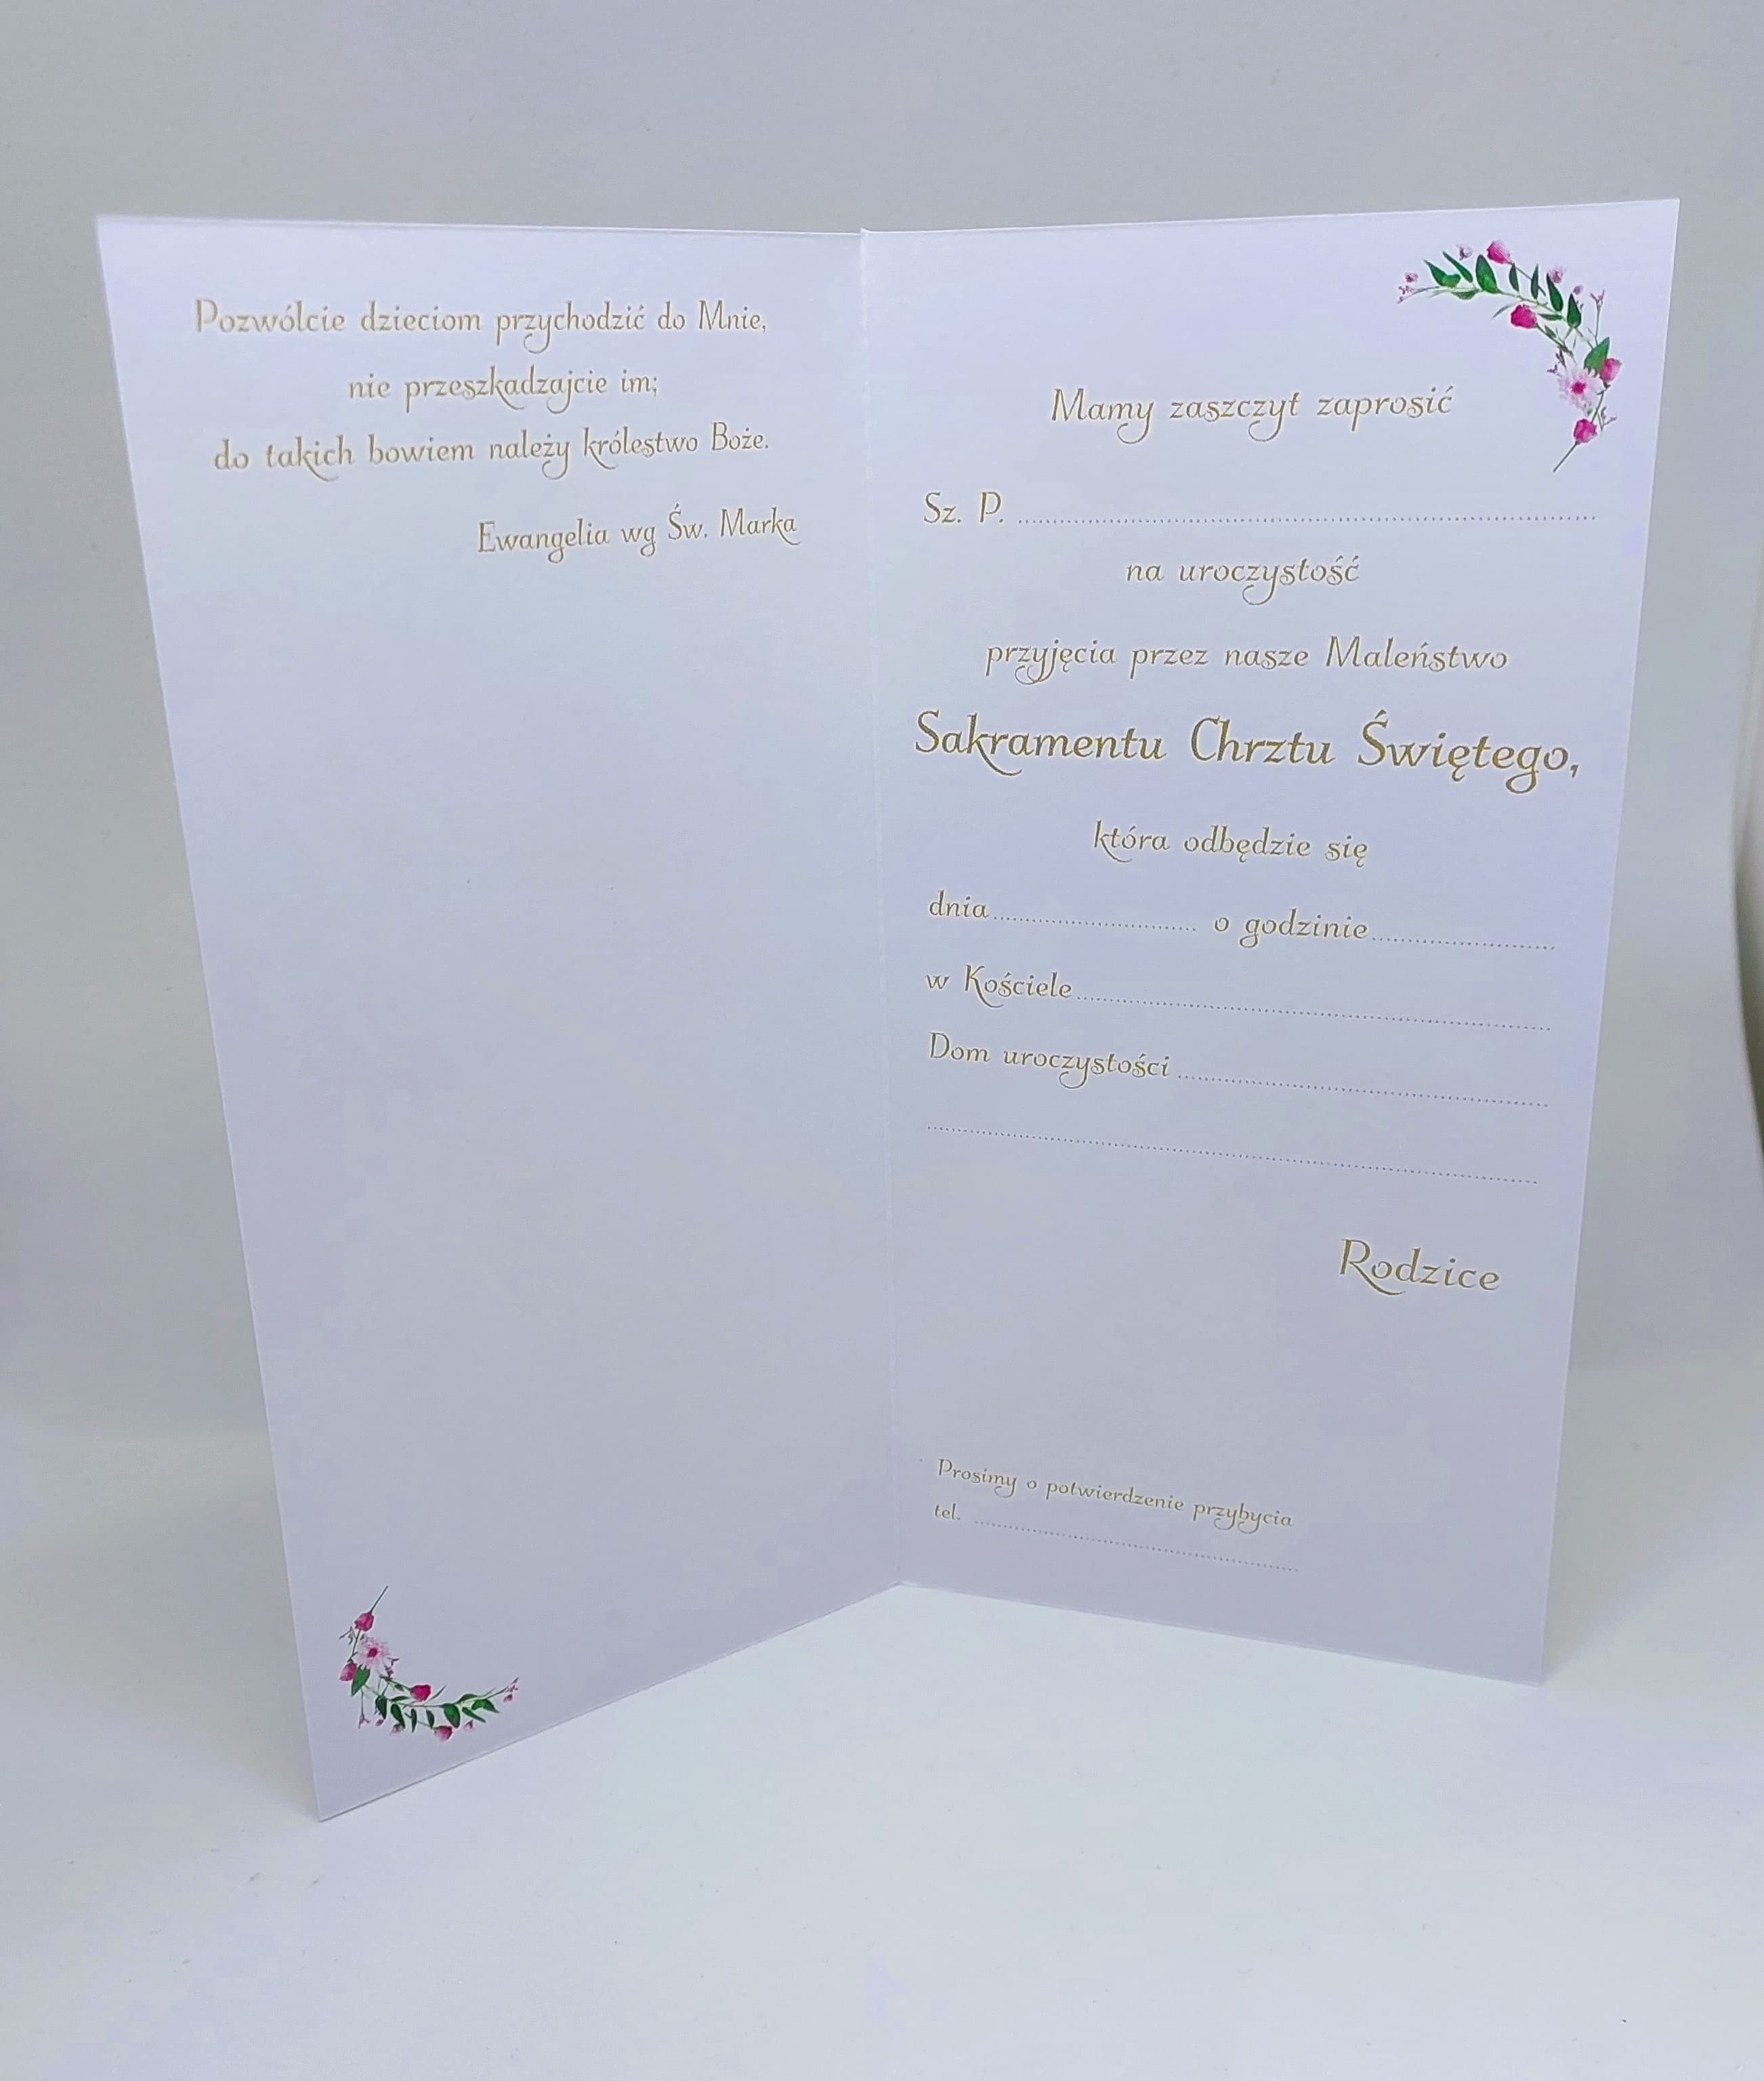 Pozwólcie dzieciom przychodzić do Mnie,
nie przeszkadzajcie im;
do takich bowiem należy królestwo Boże.
Ewangelia wg Św. Marka
Mamy zaszczyt zaprosić
Sz. P. ........................................
na uroczystość
przyjęcia przez nasze Maleństwo
Sakramentu Chrztu Świętego,
która odbędzie się
dnia.................... o godzinie....................
w Kościele........................................
Dom uroczystości ........................................
........................................
Rodzice
Prosimy o potwierdzenie przybycia
tel. ........................................